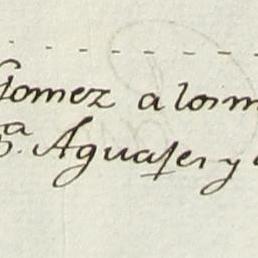 Gomez a los m
a. Aguases y